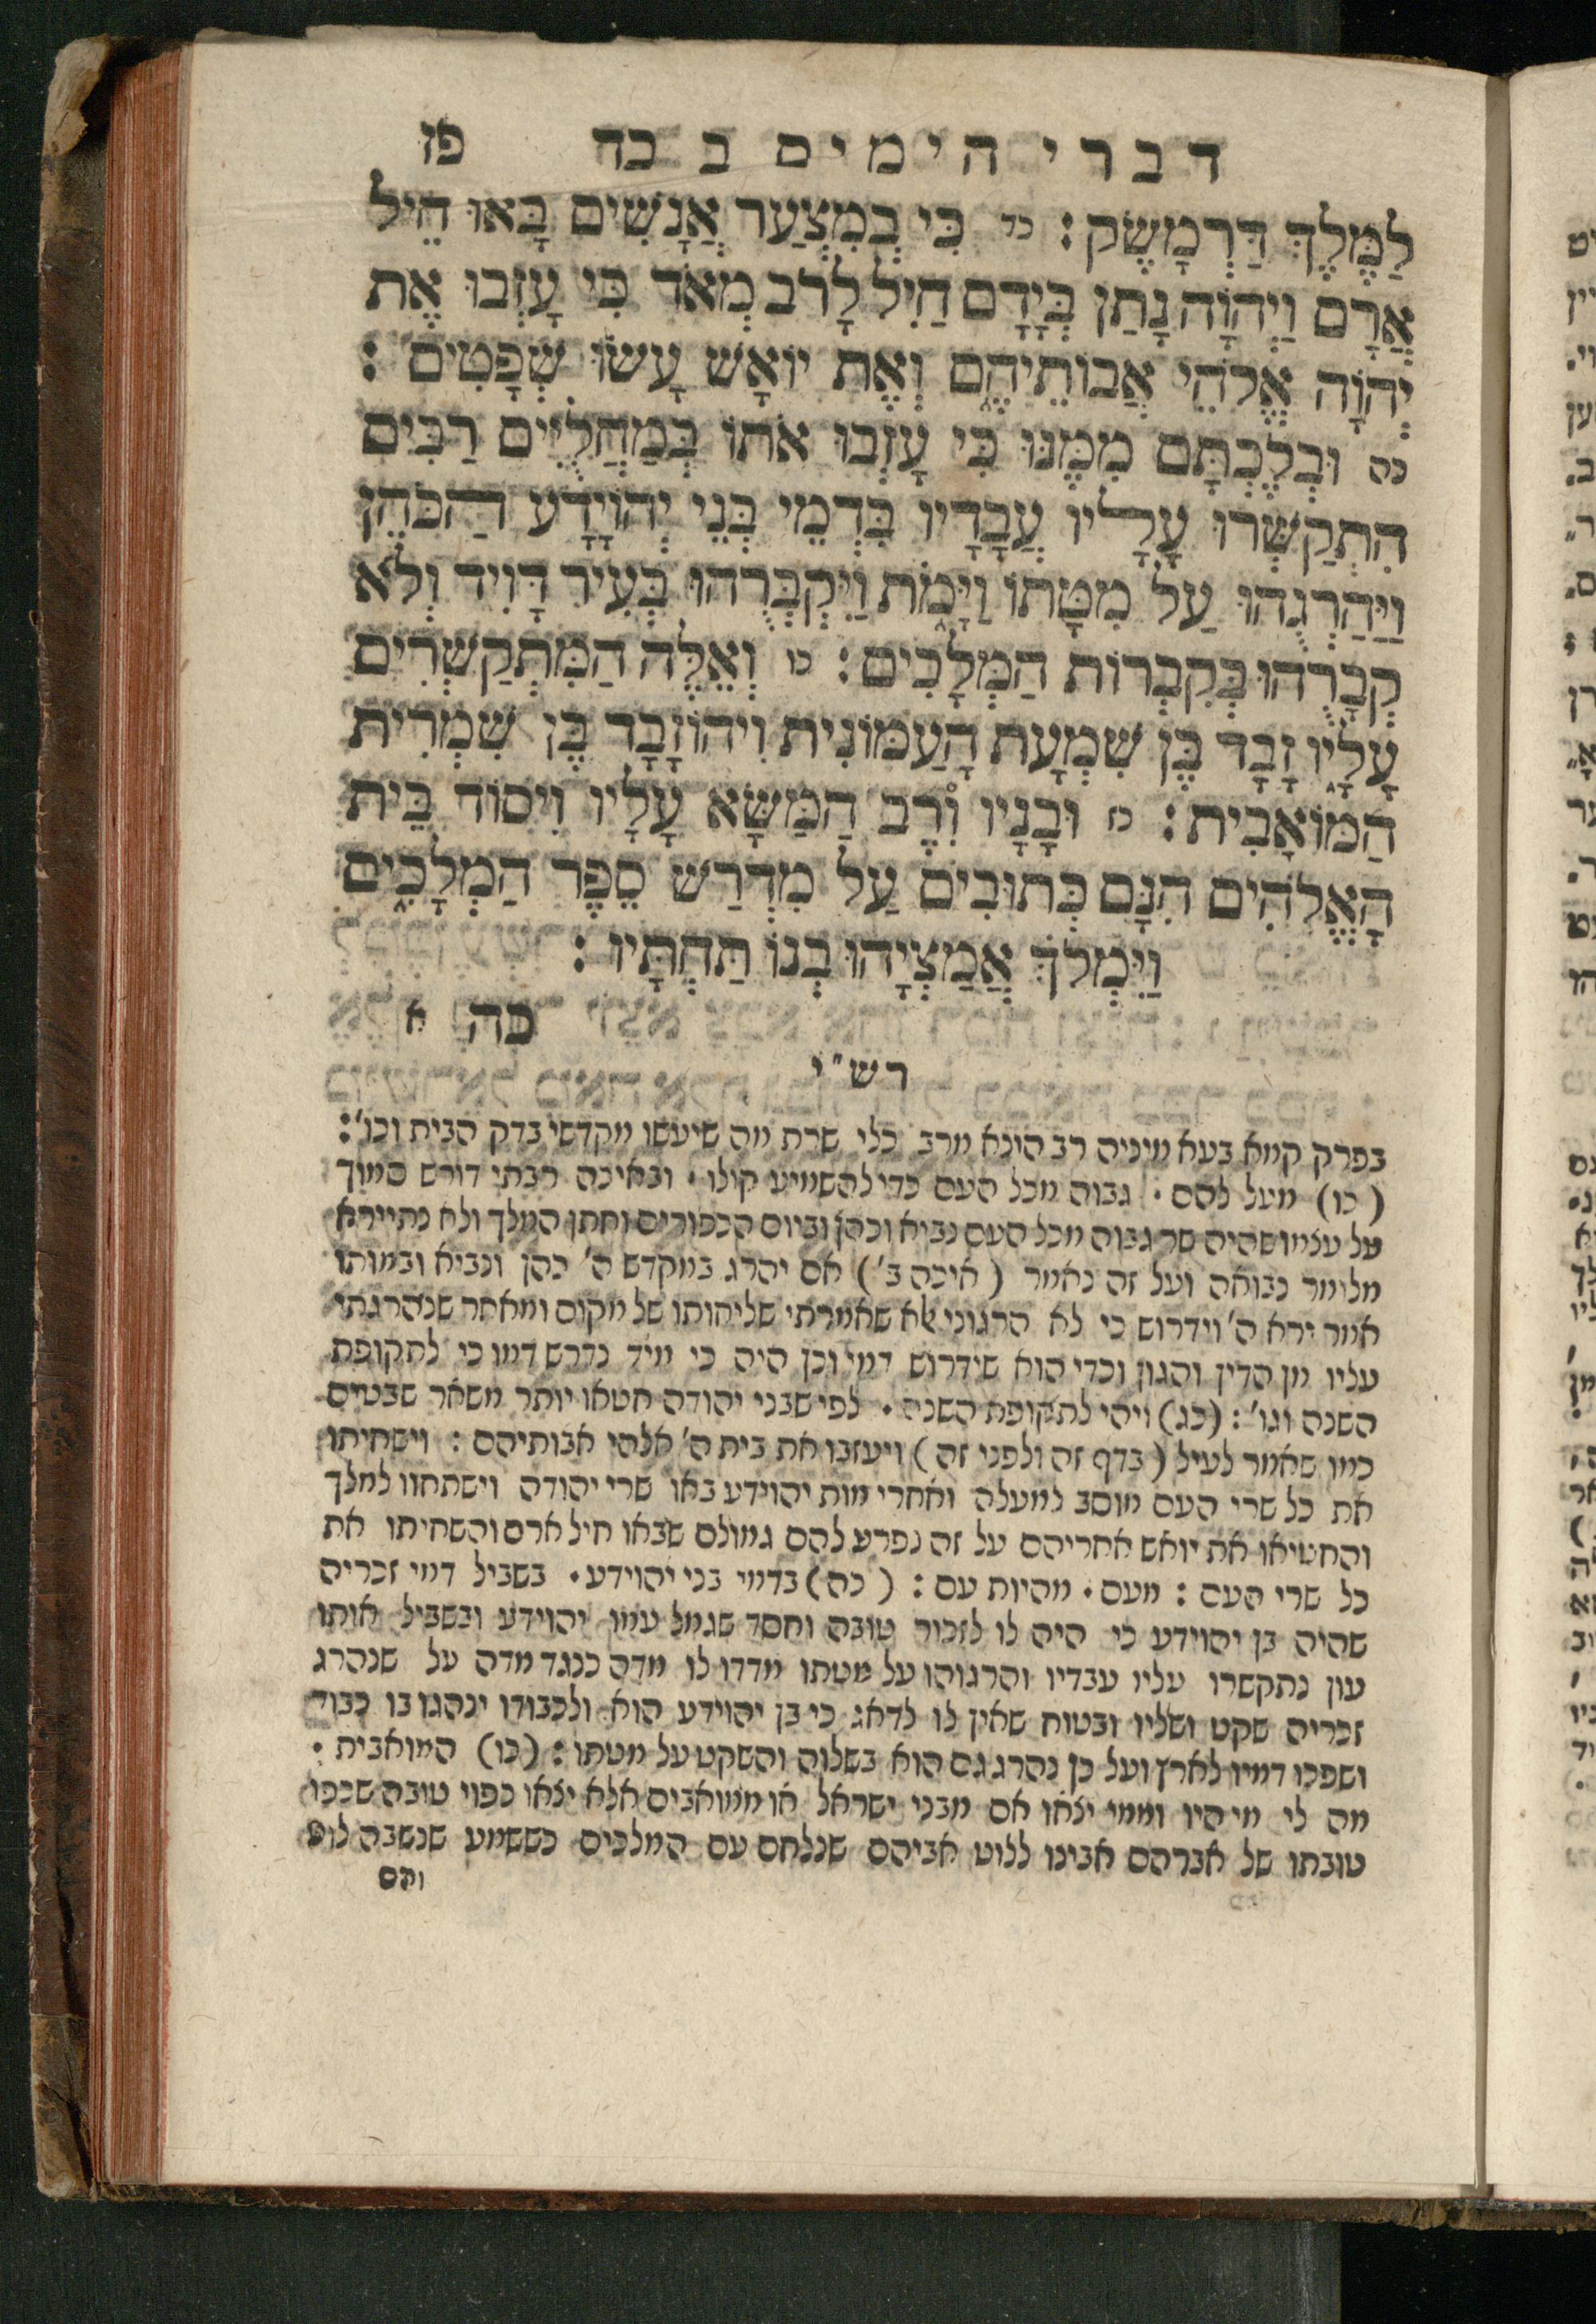 דברי הימים ב כד פז
לַמֶּלֶךְ דַּרְמָשֶׂק׃ כד כִּי בְמִצְעַר אֲנָשִׁים בָּאוּ חֵיל
אֲרָם וַיְהוָֹה נָתַן בְּיָדָם חַיִל לָרֹב מְאֹד כִּי עָזְבוּ אֶת
יְהוָֹה אֱלֹהֵי אֲבוֹתֵיהֶם וְאֶת יוֹאָשׁ עָשׂוּ שְׁפָטִים׃
כה וּבְלֶכְתָּם מִמֶּנּוּ כִּי עָזְבוּ אֹתוֹ בְּמַחֲלֻיִים רַבִּים
הִתְקַשְּׁרוּ עָלָיו עֲבָדָיו בִּדְמֵי בְּנֵי יְהוֹיָדָע הַכֹּהֵן
וַיַּהַרְגֻהוּ עַל מִטָּתוֹ וַיָּמֹת וַיִּקְבְּרֻהוּ בְּעִיר דָּוִיד וְלֹא
קְבָרֻהוּ בְּקִבְרוֹת הַמְּלָכִים׃ כו וְאֵלֶּה הַמִּתְקַשְּׁרִים
עָלָיו זָבָד בֶּן שִׁמְעָת הָעַמּוֹנִית וִיהוֹזָבָד בֶּן שִׁמְרִית
הַמּוֹאָבִית׃ כז וּבָנָיו וְרֶב הַמַּשָּׂא עָלָיו וִיסוֹד בֵּית
הָאֱלֹהִים הִנָּם כְּתוּבִים עַל מִדְרַשׁ סֵפֶר הַמְּלָכִים
וַיִּמְלֹךְ אֲמַצְיָהוּ בְנוֹ תַּחְתָּיו׃
כה א
רש"י
בפרק קמא בעא מיניה רב הונא מרב כלי שרת מה שיעשו מקדשי בדק הבית וכו':
(כו) מעל להם. גבוה מכל העם כדי להשמיע קולו. ובאיכה רבתי דורש סמוך
על עצמו שהיה שר גבוה מכל העם נביא וכהן וביום הכפורים וחתן המלך ולא נתיירא
מלומר נבואה ועל זה נאמר (איכה ב') אם יהרג במקדש ה' כהן ונביא ובמותו
אמר ירא ה' וידרוש כי לא הרגוני אלא שאמרתי שליחותו של מקום ומאחר שנהרגתי
עליו מן הדין והגון וכדי הוא שידרוש דמי וכן היה כי מיד נדרש דמו כי לתקופת
השנה וגו': (כג) ויהי לתקופת השנה. לפי שבני יהודה חטאו יותר משאר שבטים
כמו שאמר לעיל (בדף זה ולפני זה) ויעזבו את בית ה' אלהי אבותיהם: וישחיתו
את כל שרי העם מוסב למעלה ואחרי מות יהוידע באו שרי יהודה וישתחוו למלך
והחטיאו את יואש אחריהם על זה נפרע להם גמולם שבאו חיל ארם והשחיתו את
כל שרי העם: מעם. מהיות עם: (כה) בדמי בני יהוידע. בשביל דמי זכריה
שהיה בן יהוידע כי היה לו לזכור טובה וחסד שגמל עמו יהוידע ובשביל אותו
עון נתקשרו עליו עבדיו והרגוהו על מטתו מדדו לו מדה כנגד מדה על שנהרג
זכריה שקט ושליו ובטוח שאין לו לדאג כי בן יהוידע הוא ולכבודו ינהגו בו כבוד
ושפכו דמיו לארץ ועל כן נהרג גם הוא בשלוה והשקט על מטתו: (כו) המואבית.
מה לי מי היו וממי יצאו אם מבני ישראל או ממואבים אלא יצאו כפוי טובה שכפו
טובתו של אברהם אבינו ללוט אביהם שנלחם עם המלכים כששמע שנשבה לוט
והם